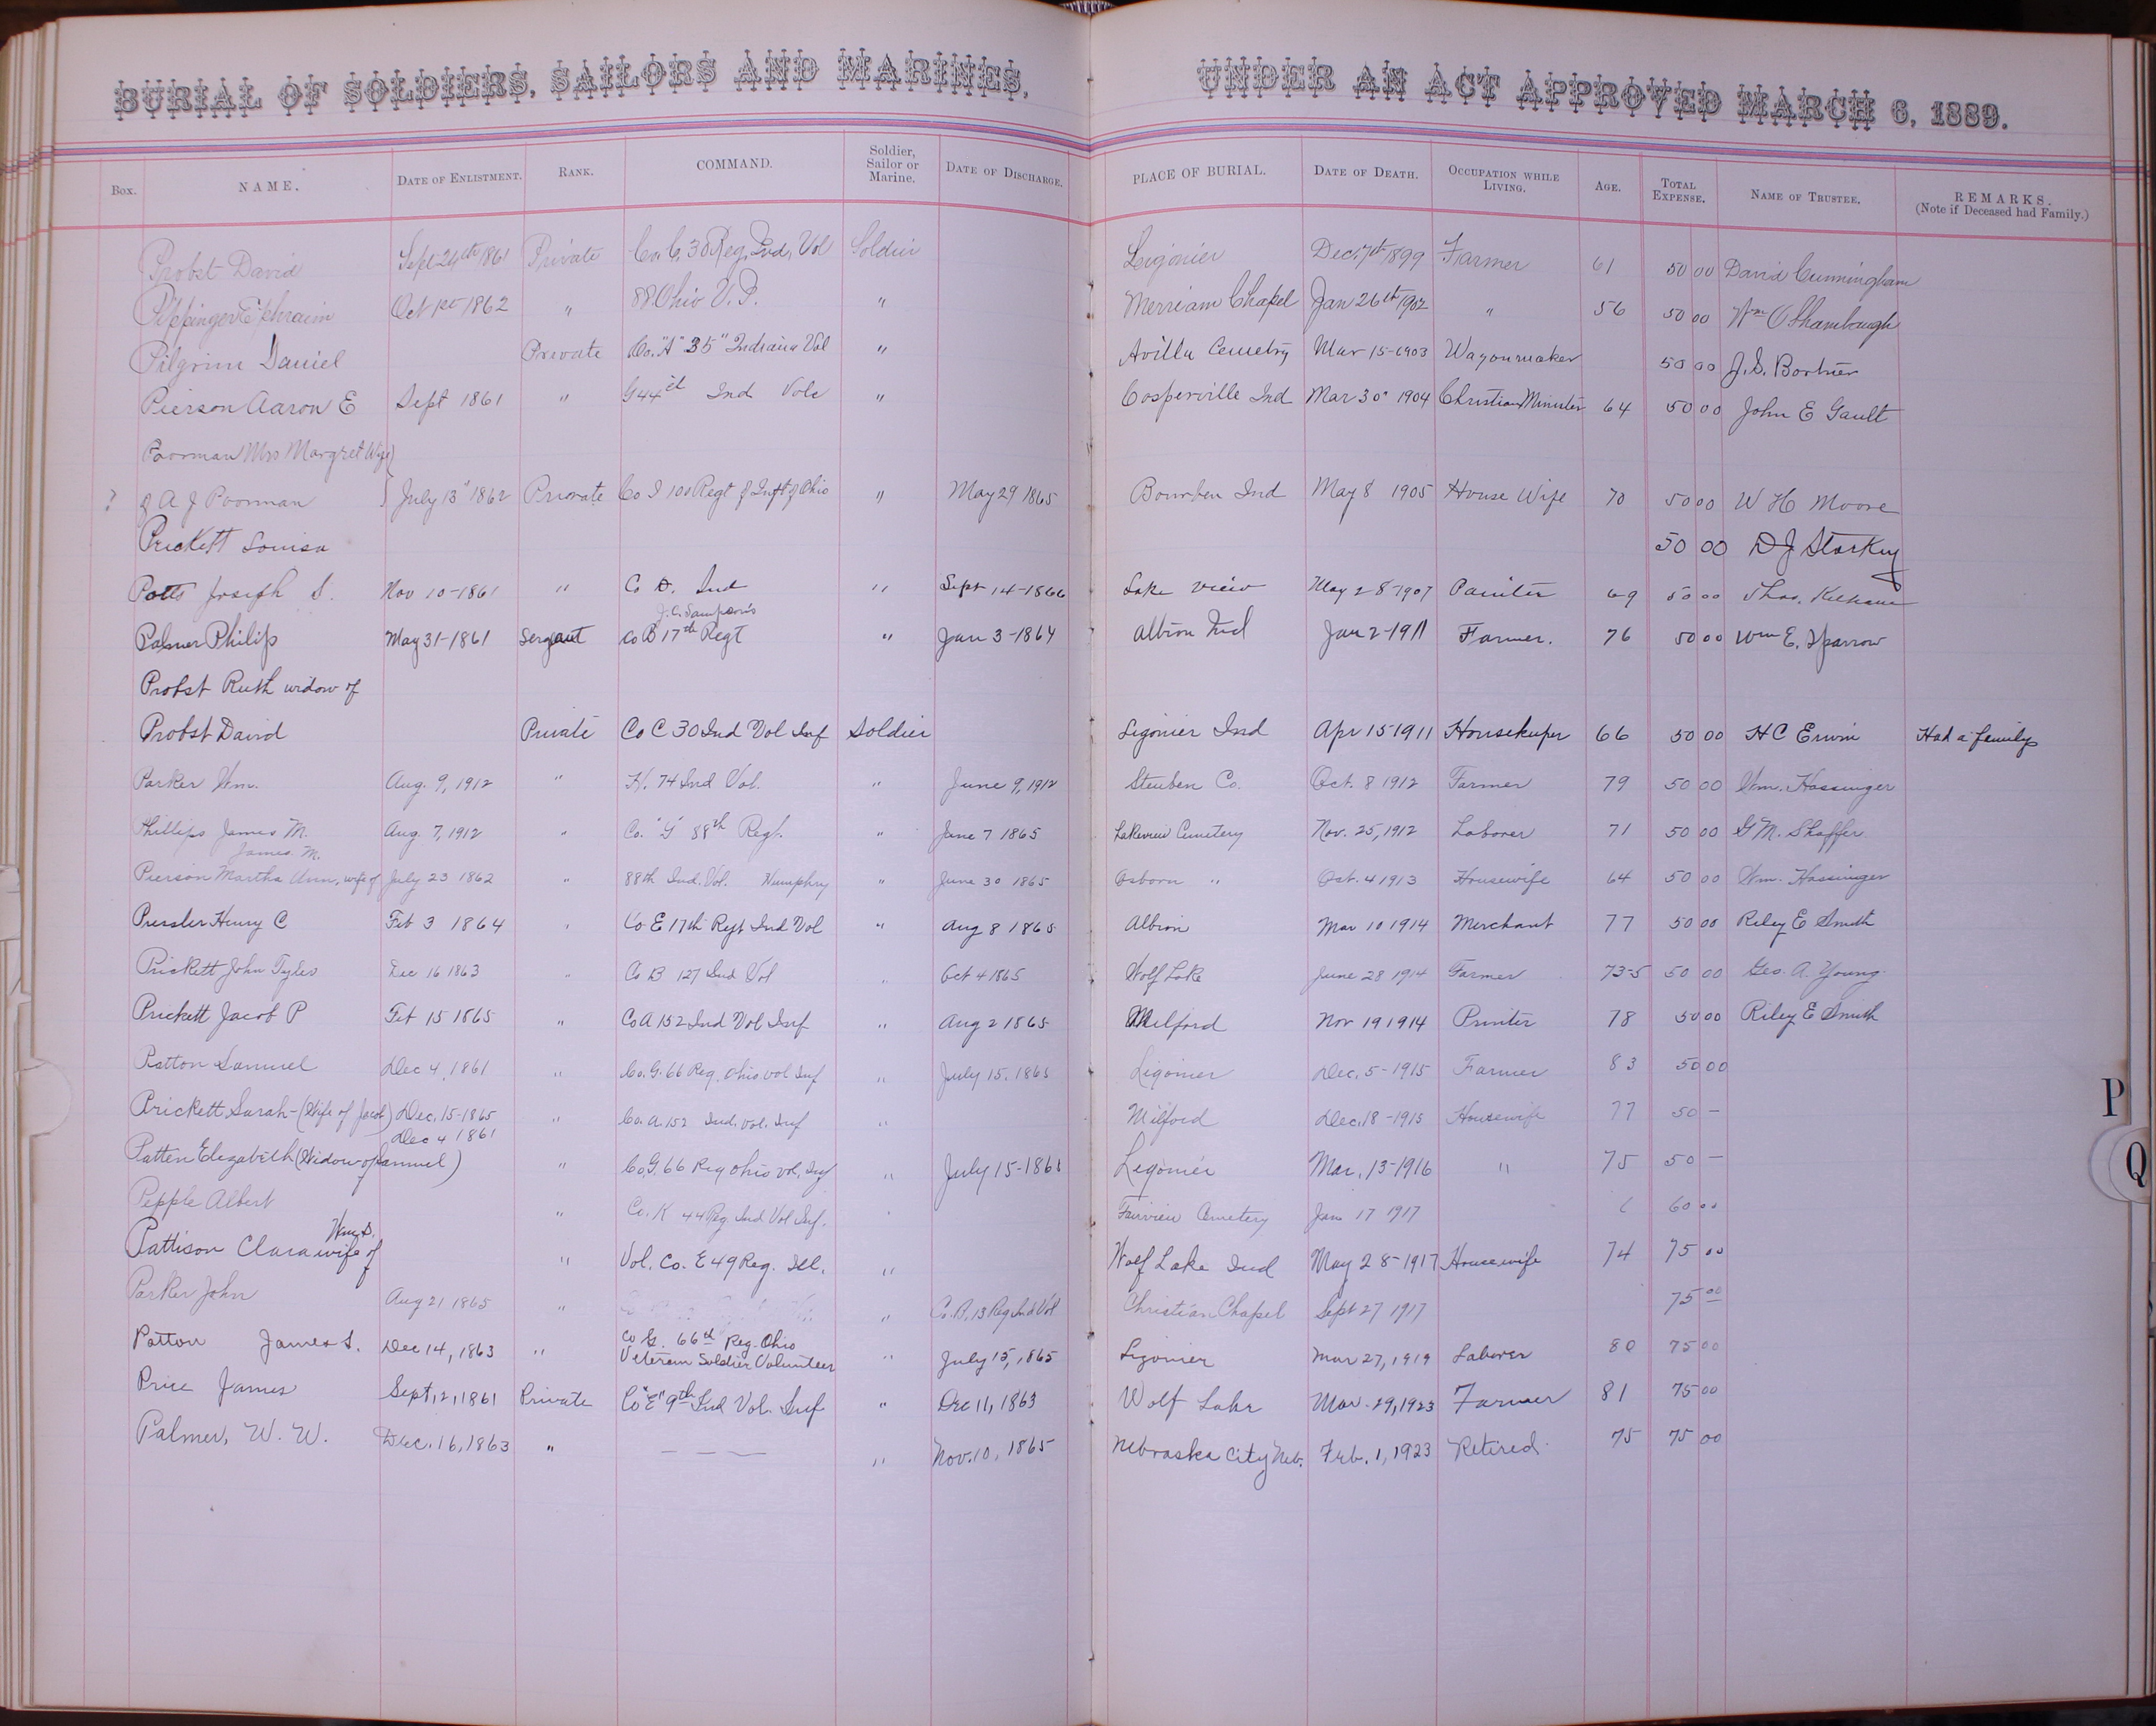 BURIAL OF SOLDIERS, SAILORS AND MARINES, UNDER AN ACT APPROVED MARCH 6, 1889.
Box. NAME. DATE OF ENLISTMENT. RANK. COMMAND. Soldier, Sailor or Marine. DATE OF DISCHARGE. PLACE OF BURIAL. DATE OF DEATH. OCCUPATION WHILE LIVING. AGE. TOTAL EXPENSE. NAME OF TRUSTEE. REMARKS. (Note if Deceased had Family.)
Probst David Sept 24th 1861 Private Co. C, 30 Reg, Ind, Vol Soldier Ligonier Dec. 7th 1899 Farmer 61 50 00 David Cunningham
Pippinger Ephraim Oct 1st 1862 " 88 Ohio V. I. " Merriam Chapel Jan 26th 1902 " 56 50 00 Wm O Shambaugh
Pilgrim Daniel Private Co. "A" 35" Indiana Vol " Avilla Cemetry Mar 15-1903 Wagonmaker 50 00 J. S. Bortner
Pierson Aaron E Sept 1861 " G 44th Ind Vols " Cosperville Ind Mar 30" 1904 Christian Minister 64 50 00 John E Gault
Poorman Mrs Margret Wife
? of A J Poorman July 13" 1862 Private Co I 100 Regt of Inft of Ohio " May 29 1865 Bourben Ind May 8 1905 House Wife 70 50 00 W H Moore
Prickett Louisa 50 00 D J Starkey
Potts Joseph S. Nov 10-1861 " Co D. Ind " Sept 14-1866 Lake view May 28-1907 Painter 69 50 00 Thos.
J. C. Sampson's
Palmer Philip May 31-1861 Sergant Co B 17th Regt " Jan 3-1864 Albion Ind Jan 2-1911 Farmer. 76 50 00 Wm E. Sparrow
Probst Ruth widow of
Probst David Private Co C 30 Ind Vol Inf Soldier Ligonier Ind Apr 15 1911 Housekeeper 66 50 00 H C Erwin Had a family
Parker Wm. Aug. 9, 1912 " K. 74 Ind Vol. " June 9, 1912 Steuben Co. Oct. 8 1912 Farmer 79 50 00 Wm. Hassinger
Phillips James M. Aug. 7, 1912 " Co. "G" 88th Regt. " June 7 1865 Lakeview Cemetery Nov. 25, 1912 Laborer 71 50 00 G M. Shaffer
James M.
Pierson Martha Ann, wife of July 23 1862 " 88th Ind. Vol. Humphry " June 30 1865 Osborn " Oct. 4 1913 Housewife 64 50 00 Wm. Hassinger
Pressler Henry C Feb 3 1864 " Co E 17th Regt Ind Vol " Aug 8 1865 Albion Mar 10 1914 Merchant 77 50 00 Riley E Smith
Prickett John Tyler Dec 16 1863 " Co B 127 Ind Vol " Oct 4 1865 Wolf Lake June 28 1914 Farmer 73-5 50 00 Geo. A. Young
Prickett Jacob P Feb 15 1865 " Co A 152 Ind Vol Inf " Aug 2 1865 Milford Nov 19 1914 Printer 78 50 00 Riley E Smith
Patton Samuel Dec 4, 1861 " Co. G. 66 Reg. Ohio Vol Inf " July 15, 1865 Ligonier Dec. 5-1915 Farmer 83 50 00
Prickett Sarah-(Wife of Jacob) Dec. 15-1865 " Co. A. 152 Ind. Vol. Inf " Milford Dec. 18-1915 Housewife 77 50 —
Dec 4 1861
Patten Elizabeth (Widow of Samuel) " Co. G. 66 Reg Ohio Vol. Inf " July 15-1865 Ligonier Mar. 13-1916 " 75 50 —
Pepple Albert " Co. K 44 Reg. Ind Vol Inf. " Fairview Cemetery Jan 17 1917 60 00
Wm D.
Pattison Clara wife of " Vol. Co. E 49 Reg. Ill. " Wolf Lake Ind May 28-1917 Housewife 74 75 00
Parker John Aug 21 1865 " " Co. B. 13 Reg Ind Vol Christian Chapel Sept 27 1917 75 00
Patton James S. Dec 14, 1863 " Co G. 66th Reg. Ohio
Veteran Soldier Volunteer " July 15, 1865 Ligonier Mar 27, 1919 Laborer 80 75 00
Price James Sept, 2, 1861 Private Co "E" 9th Ind Vol. Inf " Dec 11, 1863 Wolf Lake Mar. 29, 1923 Farmer 81 75 00
Palmer, W. W. Dec. 16, 1863 " — — — " Nov. 10, 1865 Nebraska City Neb. Feb. 1, 1923 Retired. 75 75 00
P
Q